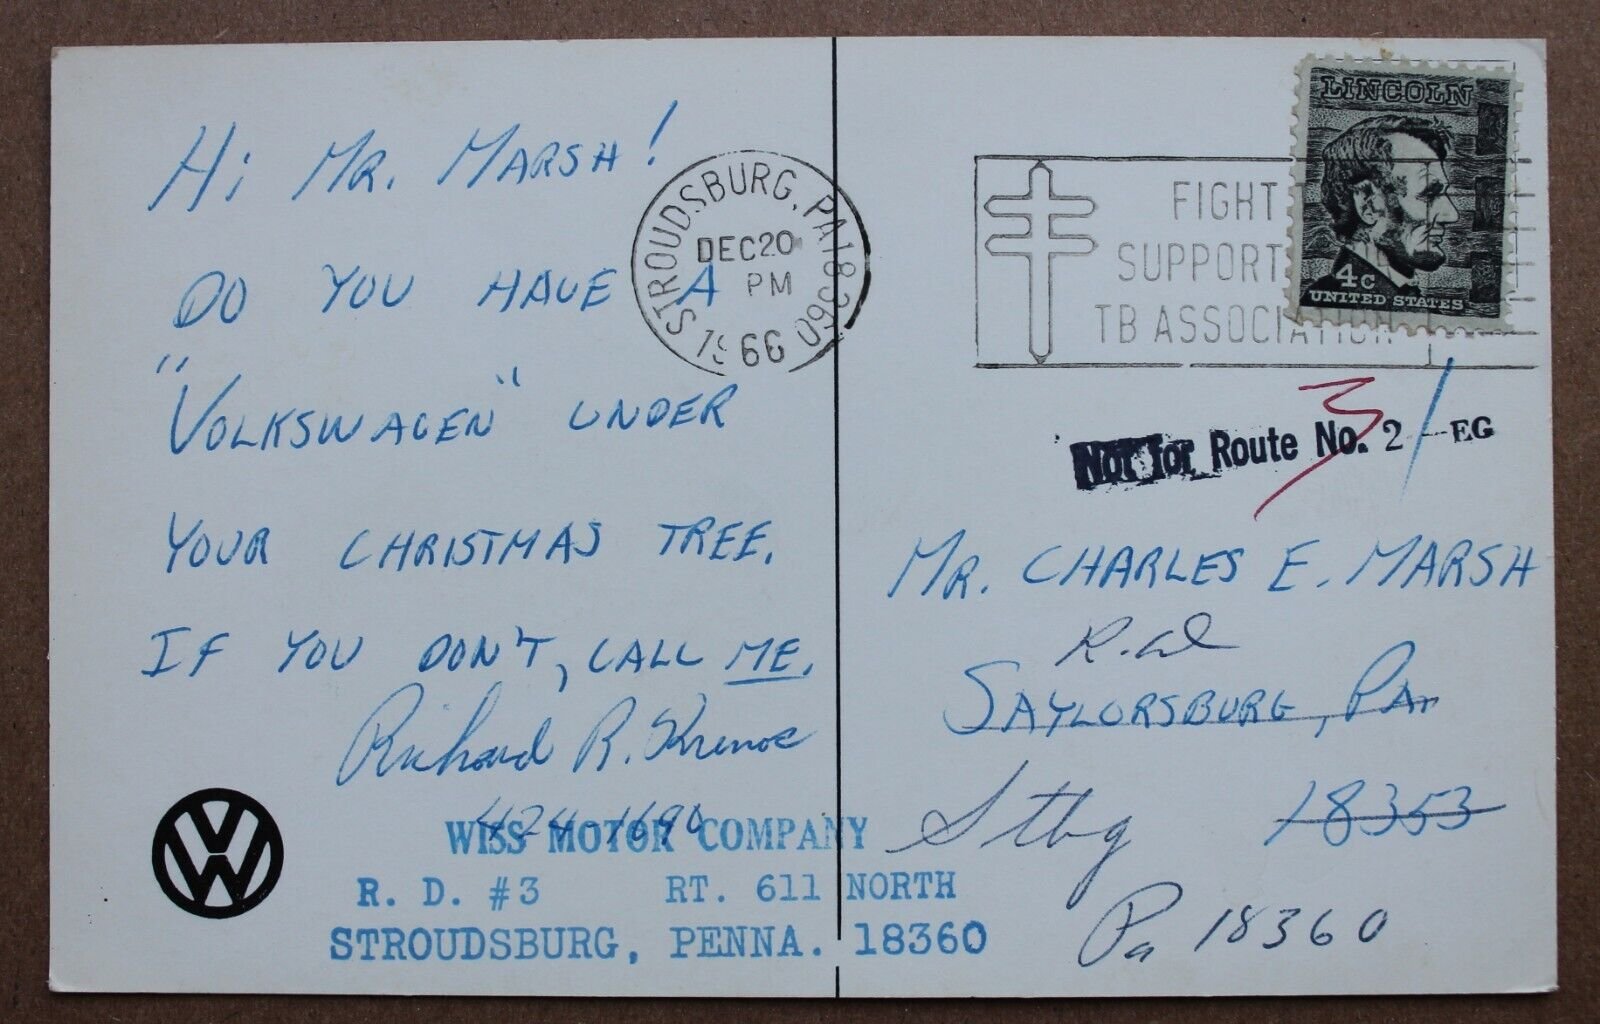 Hi MR. MARSH!
DO YOU HAVE A
"VOLKSWAGEN" UNDER
YOUR CHRISTMAS TREE.
IF YOU DON'T, CALL ME.
Richard R.
424-1690
WISS MOTOR COMPANY
R. D. #3 RT. 611 NORTH
STROUDSBURG, PENNA. 18360
VW
STROUDSBURG, PA 18360
DEC 20
PM
1966
FIGHT
SUPPORT
TB ASSOCIATION
LINCOLN
4c
UNITED STATES
Not for Route No. 2 -EG
3 1
MR. CHARLES E. MARSH
SAYLORSBURG, PA.
18353
Stbg
Pa 18360